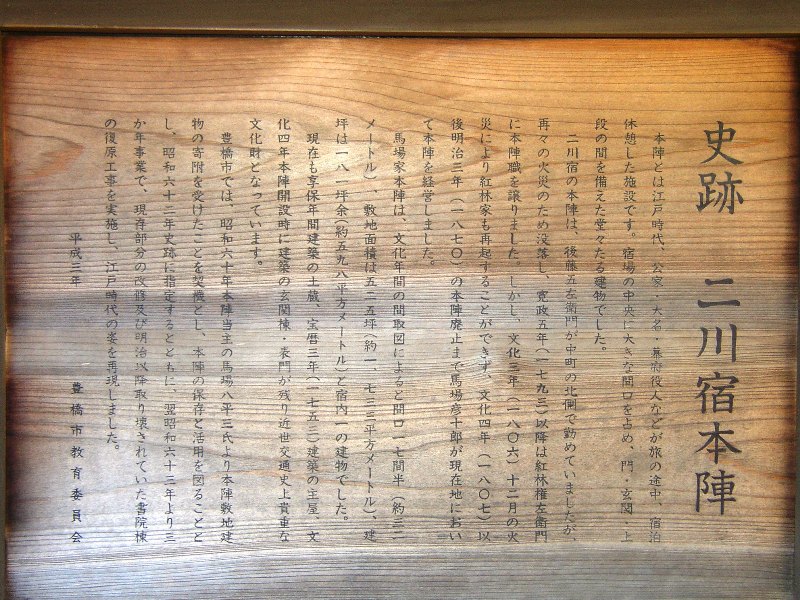 史跡 二川宿本陣
本陣とは江戸時代、公家・大名・幕府役人などが旅の途中、宿泊
休憩した施設です。宿場の中央に大きな間口を占め、門・玄関・上
段の間を備えた堂々たる建物でした。
二川宿の本陣は、後藤五左衛門が中町の北側で勤めていましたが、
再々の火災のため没落し、寛政五年(一七九三)以降は紅林権左衛門
に本陣職を譲りました。しかし、文化三年(一八〇六)十二月の火
災により紅林家も再起することができず、文化四年(一八〇七)以
後明治三年(一八七〇)の本陣廃止まで馬場彦十郎が現在地におい
て本陣を経営しました。
馬場家本陣は、文化年間の間取図によると間口一七間半(約三二
メートル)、敷地面積は五二五坪(約一、七三三平方メートル)、建
坪は一八一坪余(約五九八平方メートル)と宿内一の建物でした。
現在も享保年間建築の土蔵、宝暦三年(一七五三)建築の主屋、文
化四年本陣開設時に建築の玄関棟・表門が残り近世交通史上貴重な
文化財となっています。
豊橋市では、昭和六十年本陣当主の馬場八平三氏より本陣敷地建
物の寄附を受けたことを契機とし、本陣の保存と活用を図ることと
し、昭和六十二年史跡に指定するとともに、翌昭和六十三年より三
か年事業で、現存部分の改修及び明治以降取り壊されていた書院棟
の復原工事を実施し、江戸時代の姿を再現しました。
平成三年 豊橋市教育委員会